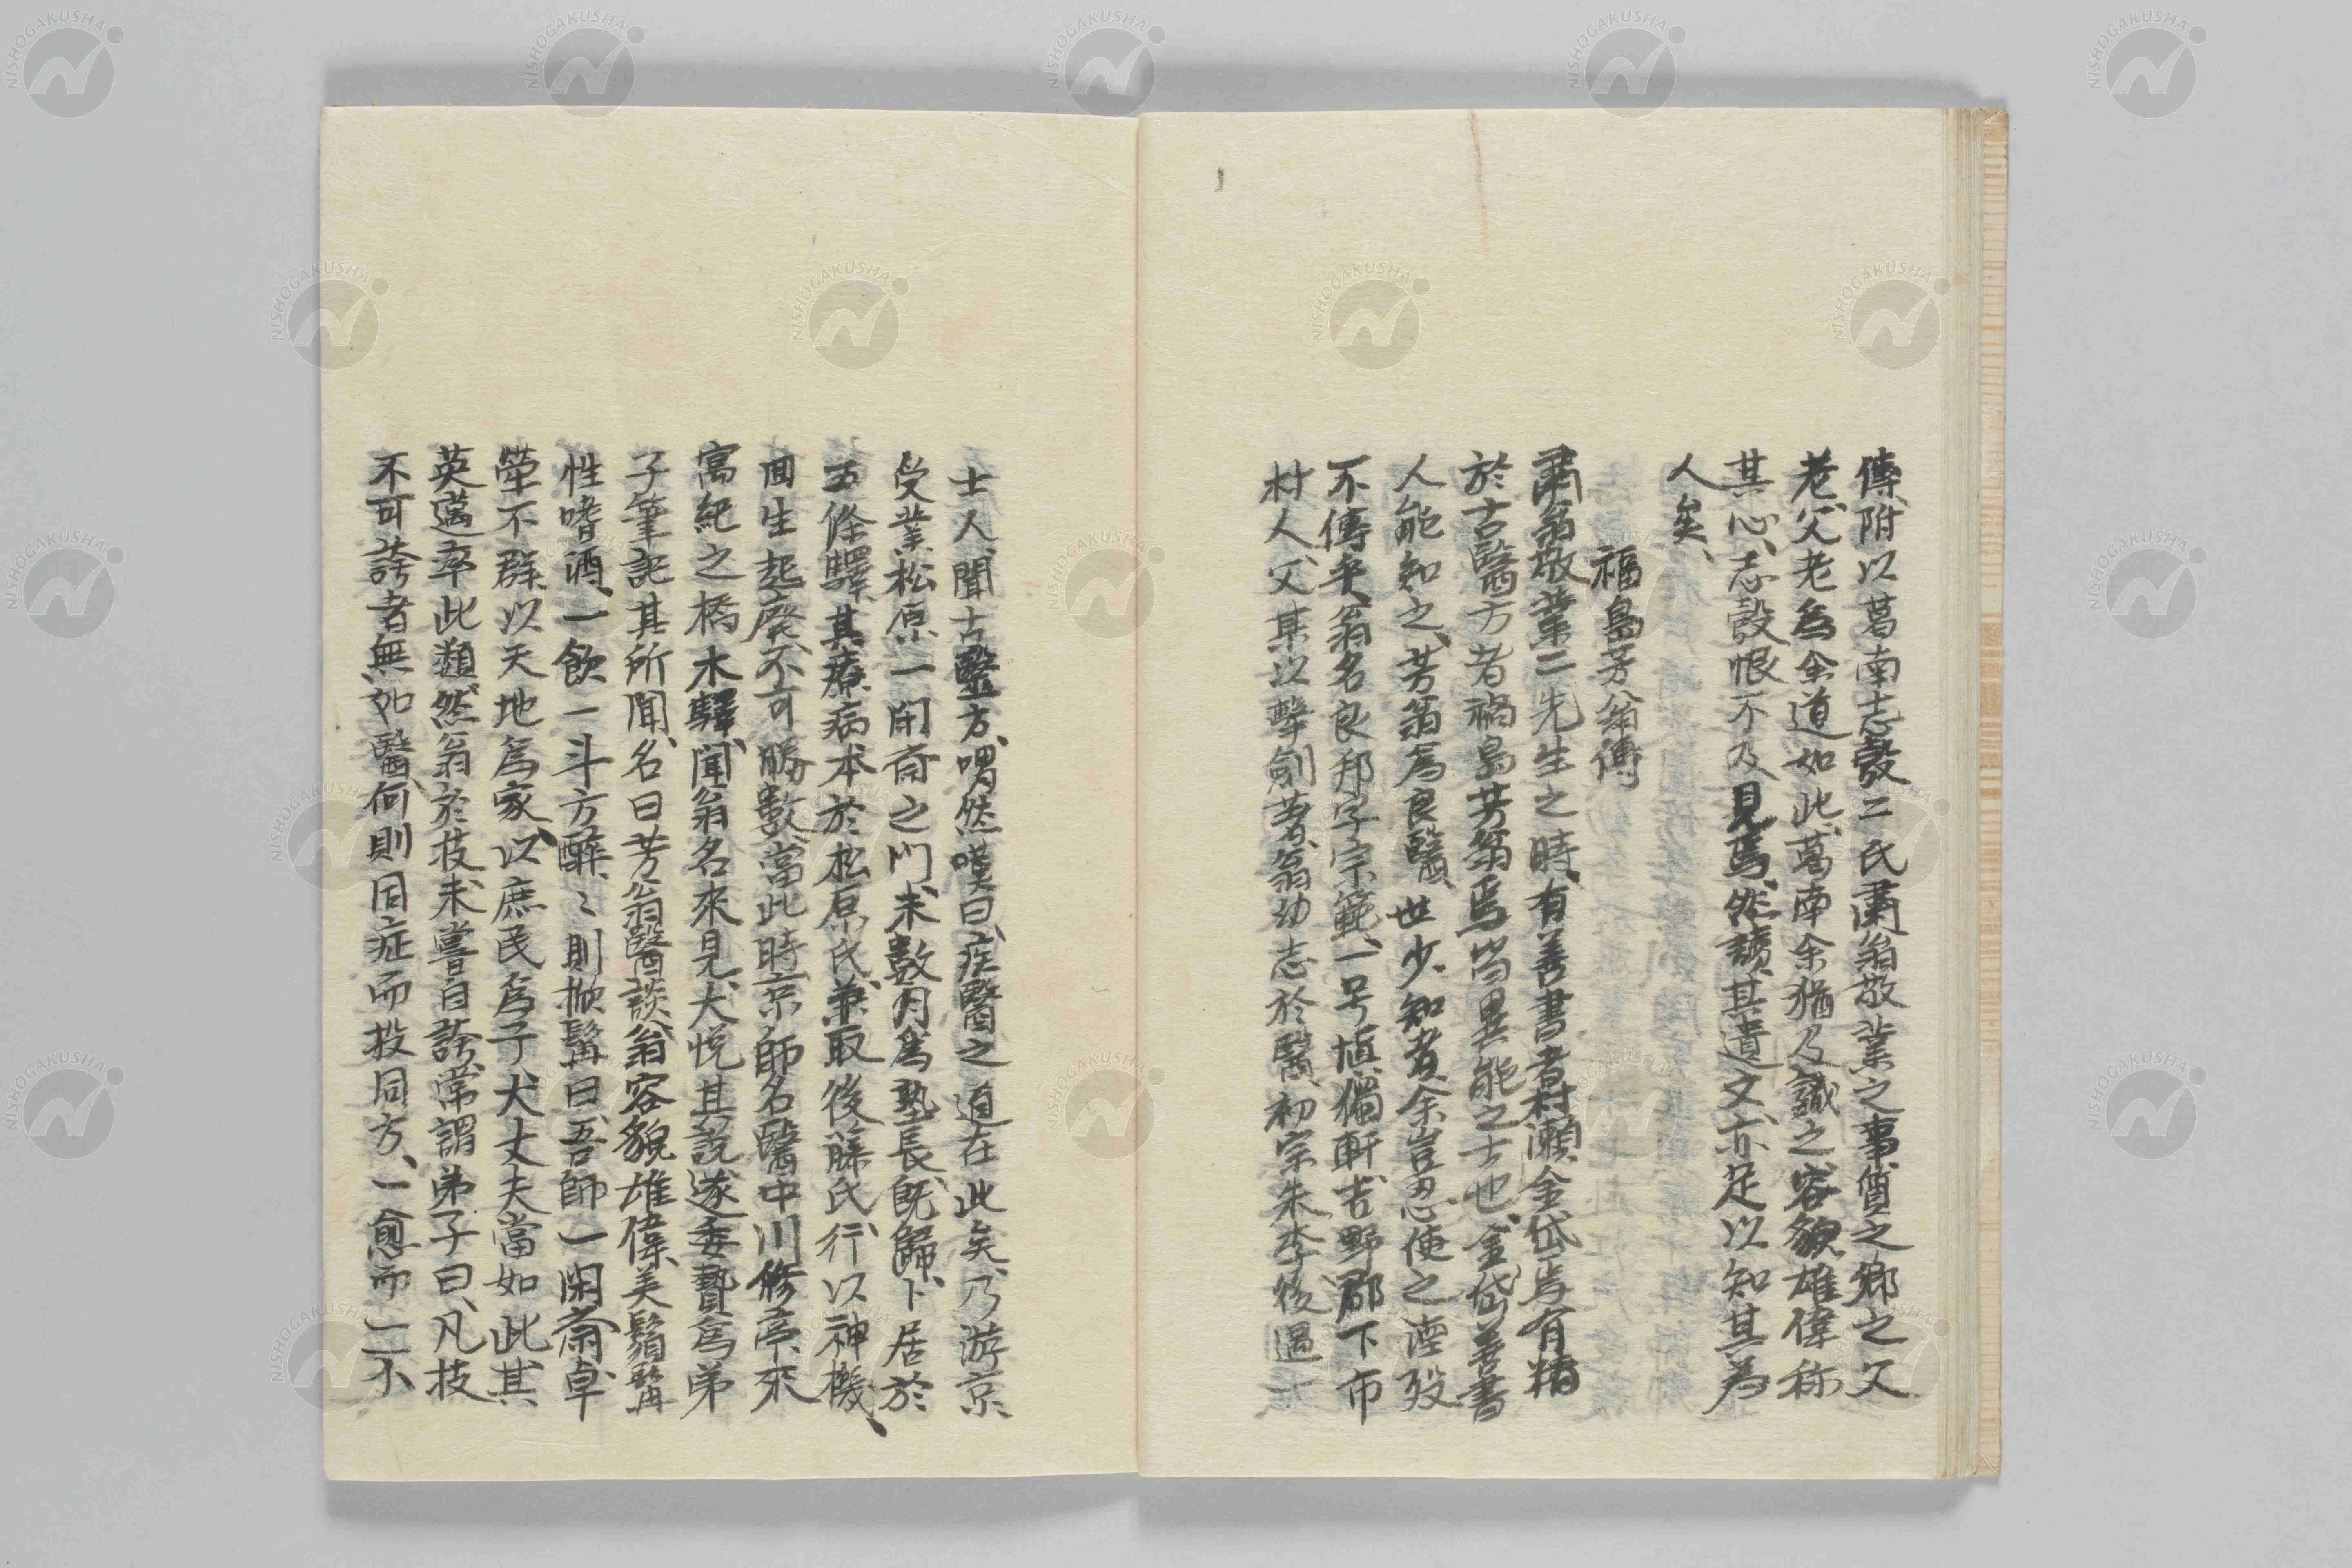 傳、附以葛南志毅二氏、肅翁敬業之事、質之鄉之父
老、父老爲余道如此、葛南余猶及識之、容貌雄偉称
其心、志毅恨不及見焉、然讀其遺文、亦足以知其為
人矣、
福島芳翁傳
肅翁敬業二先生之時、有善書者村瀬金岱焉、有精
於古醫方者福島芳翁焉、皆異能之士也、金岱善書
人能知之、芳翁爲良醫、世少知者、余豈忍使之湮歿
不傳矣、翁名良邦、字宗範、一号慎獨軒、吉野郡下市
村人、父某以擊劍著、翁幼志於醫、初宗朱李、後過一
士人、聞古醫方、喟然嘆曰、疾醫之道在此矣、乃游京、
受業松原一閑斎之門、未數月爲塾長、既歸、卜居於
五條驛、其療病本於松原氏、兼取後藤氏、行以神機、
回生起廢、不可勝數、當此時京師名醫中川修亭、來
寓紀之橋本驛、聞翁名來見、大悅其說、遂委贄爲弟
子、筆記其所聞、名曰芳翁醫談、翁容貌雄偉、美鬚髯
性嗜酒、一飲一斗方醉、〻則掀髯曰、吾師一閑斎卓
犖不群、以天地爲家、以庶民爲子、大丈夫當如此、其
英邁率此類、然翁於技未嘗自誇、常謂弟子曰、凡技
不可誇者無如醫、何則同症而投同方、一愈而一不